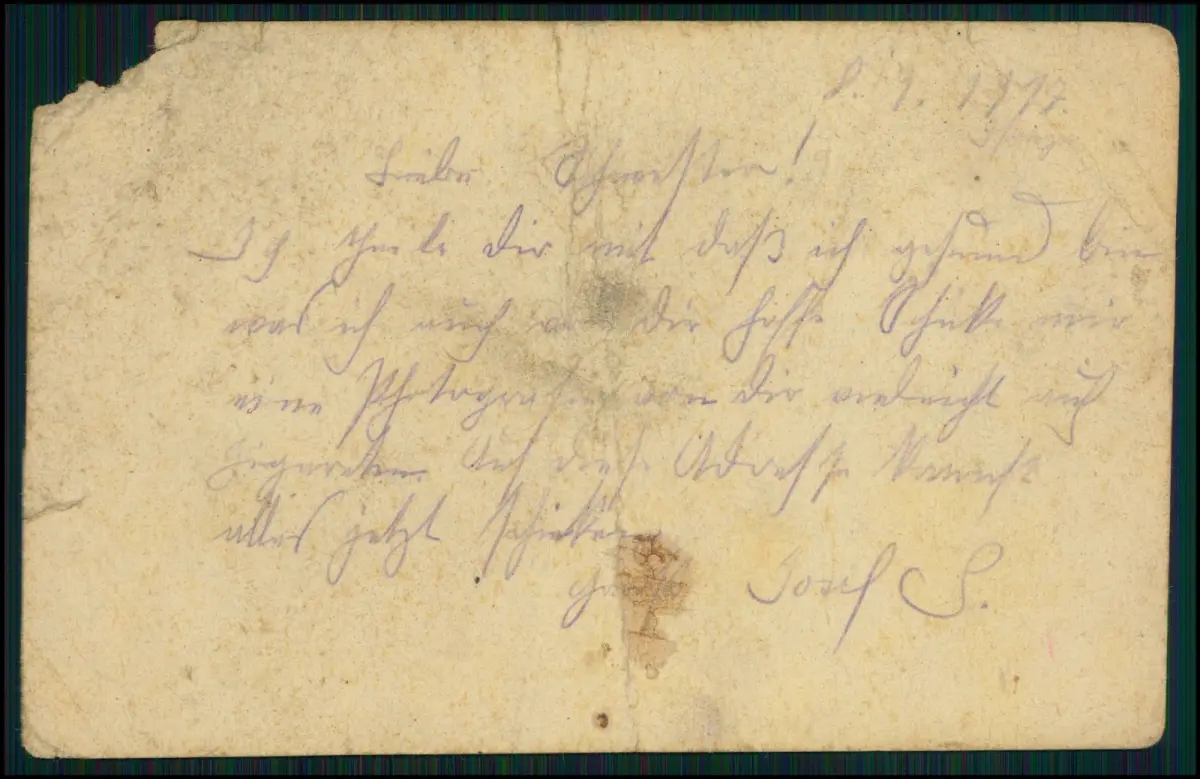 8. 9. 1917.
Liebe Schwester!
Ich theile dir mit daß ich gesund bin
was ich auch von dir hoffe Schicke mir
eine Photografie von dir vieleicht auch
Zigaretten Auf diese Adresse kannst
alles jetzt schicken
Josef S.